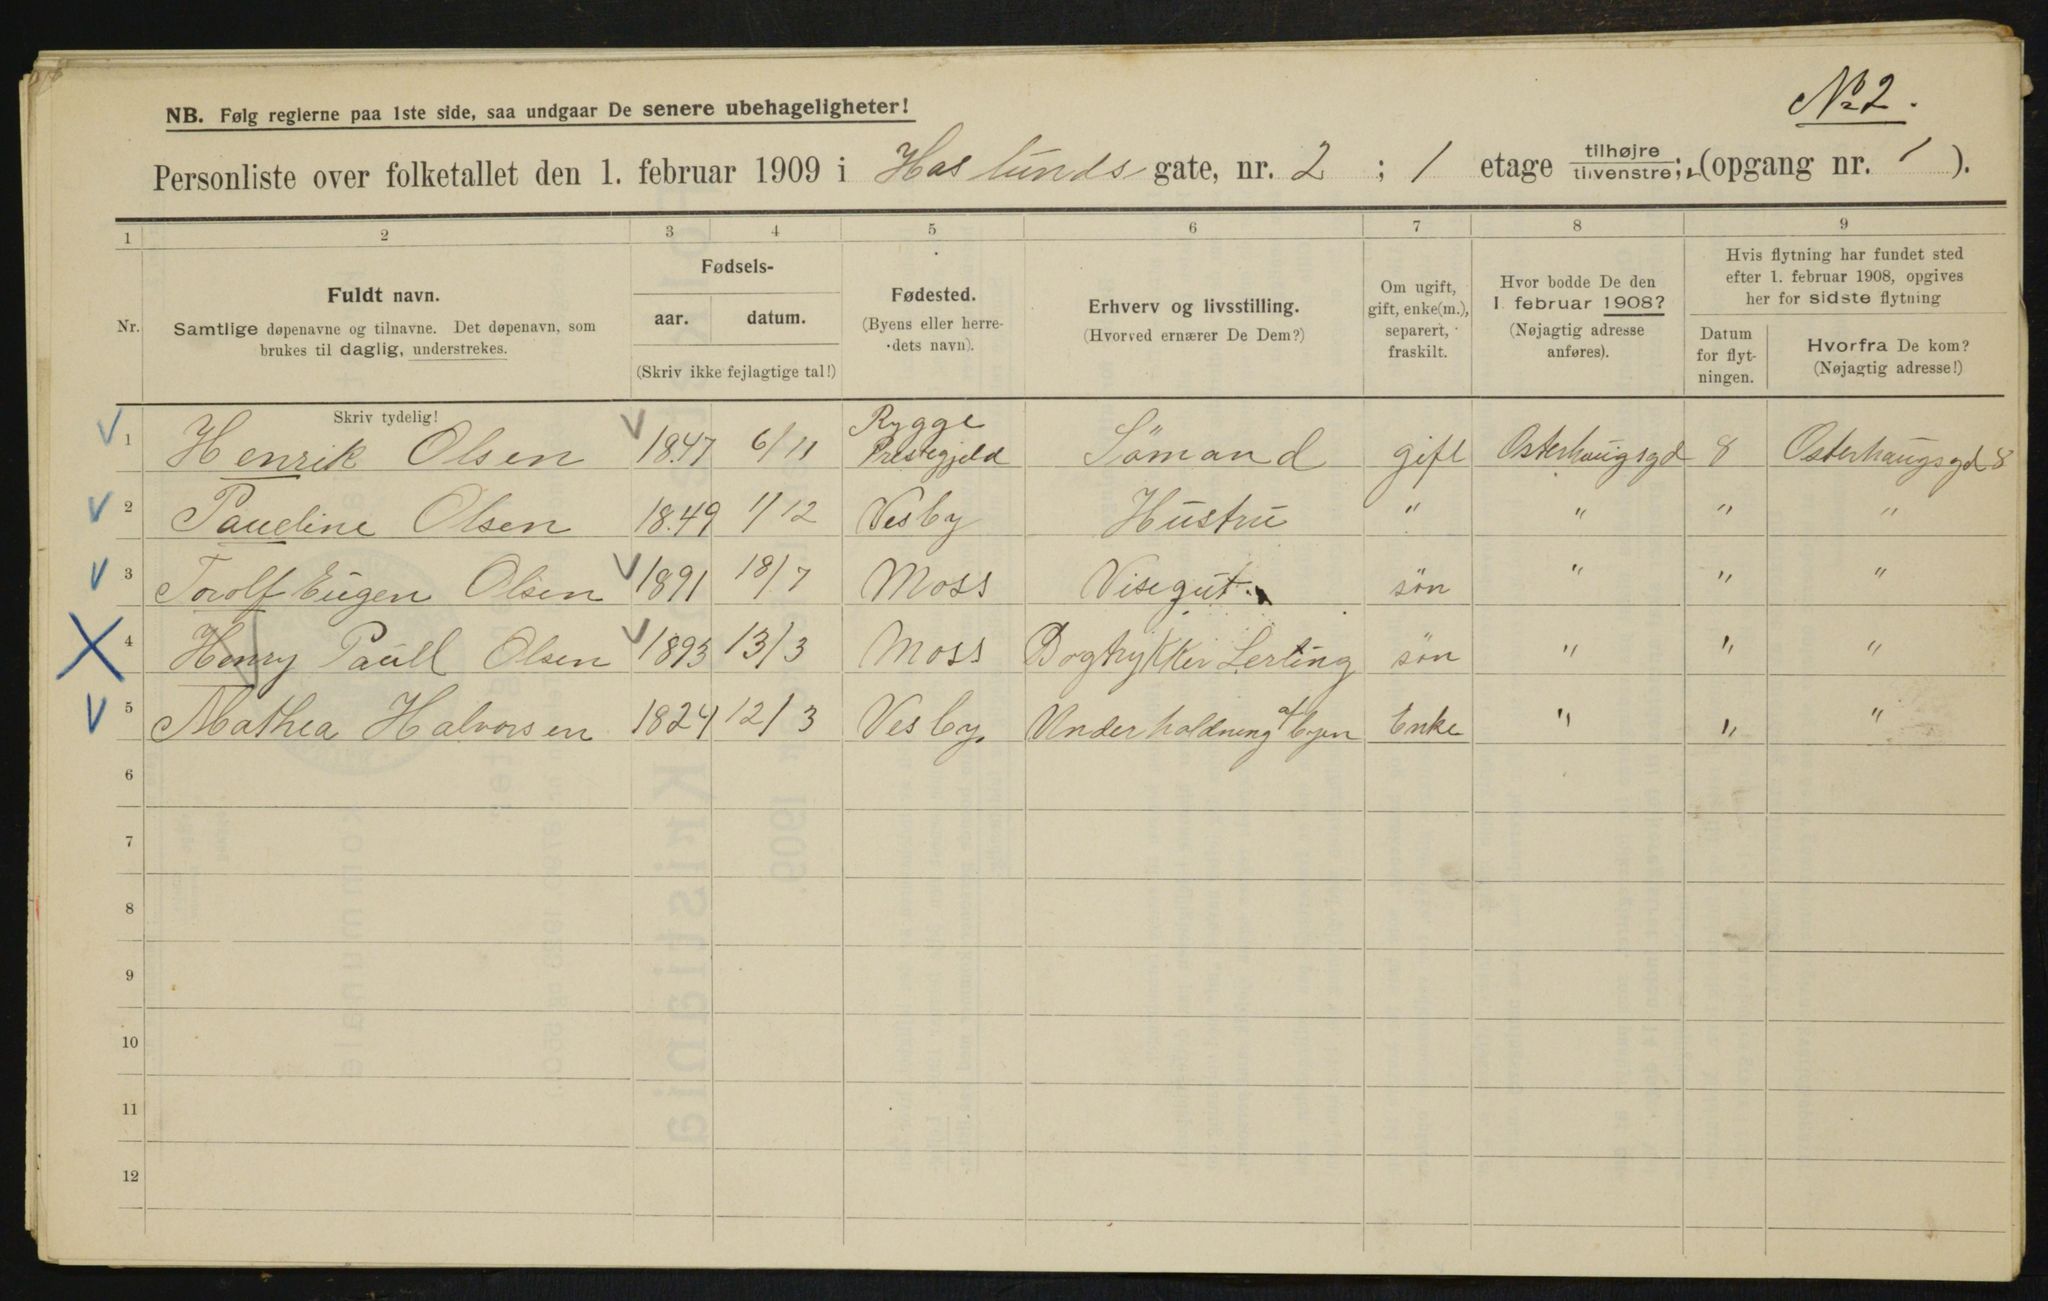 No 2.
NB. Følg reglerne paa 1ste side, saa undgaar De senere ubehageligheter!
Personliste over folketallet den 1. februar 1909 i Haslunds gate, nr. 2 ; 1 etage tilhøjre / tilvenstre ; (opgang nr. 1 ).
1 2 3 4 5 6 7 8 9
Nr.
Fuldt navn.
Samtlige døpenavne og tilnavne. Det døpenavn, som
brukes til daglig, understrekes.
Fødsels-
aar. datum.
(Skriv ikke fejlagtige tal!)
Fødested.
(Byens eller herre-
dets navn).
Erhverv og livsstilling.
(Hvorved ernærer De Dem?)
Om ugift,
gift, enke(m.),
separert,
fraskilt.
Hvor bodde De den
1. februar 1908?
(Nøjagtig adresse
anføres).
Hvis flytning har fundet sted
efter 1. februar 1908, opgives
her for sidste flytning
Datum
for flyt-
ningen.
Hvorfra De kom?
(Nøjagtig adresse!)
Skriv tydelig!
1 Henrik Olsen 1847 6/11 Rygge Prestegjeld Sömand gift Osterhaugsgd 8 Osterhaugsgd 8
2 Paudine Olsen 1849 1/12 Vesby Hustru " " " "
3 Torolf Eugen Olsen 1891 18/7 Moss Visegut. sön " " "
4 Henry Paull Olsen 1893 13/3 Moss Bogtrykker Lerling sön " " "
5 Mathea Halvorsen 1824 12/3 Vesby. Underholdning af byen Enke " " "
6
7
8
9
10
11
12